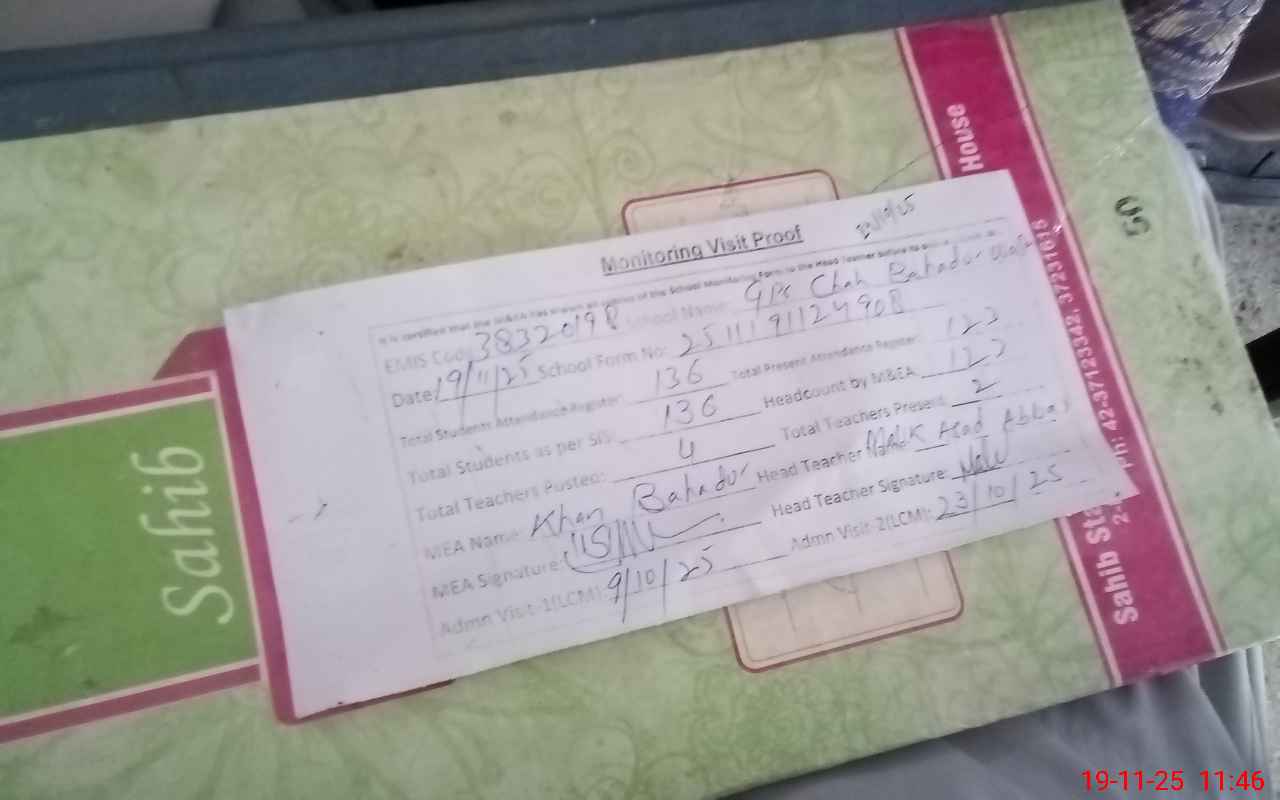 House
50
Monitoring Visit Proof
It is certified that the M&EA has shown all entries of the School Monitoring Form to the Head Teacher before
EMIS Code 38320198 School Name: GPS Chah Bahadur
Date 19/11/25 School Form No: 2511191124908
Total Students Attendance Register: 136 Total Present Attendance Register: 122
Total Students as per SIS: 136 Headcount by M&EA: 122
Total Teachers Posted: 4 Total Teachers Present: 2
MEA Name: Khan Bahadur Head Teacher Name: Abbas
MEA Signature: Head Teacher Signature:
Admn Visit-1(LCM): 9/10/25 Admn Visit-2(LCM): 23/10/25
Sahib
Sahib
Ph: 42-37123342, 37231615
19-11-25 11:46